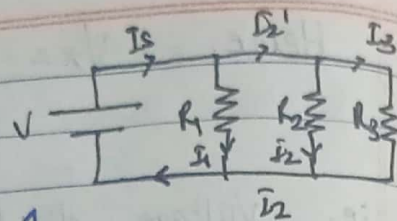 Is I2' I3
V R1 R2 R3
I1 I2
I2